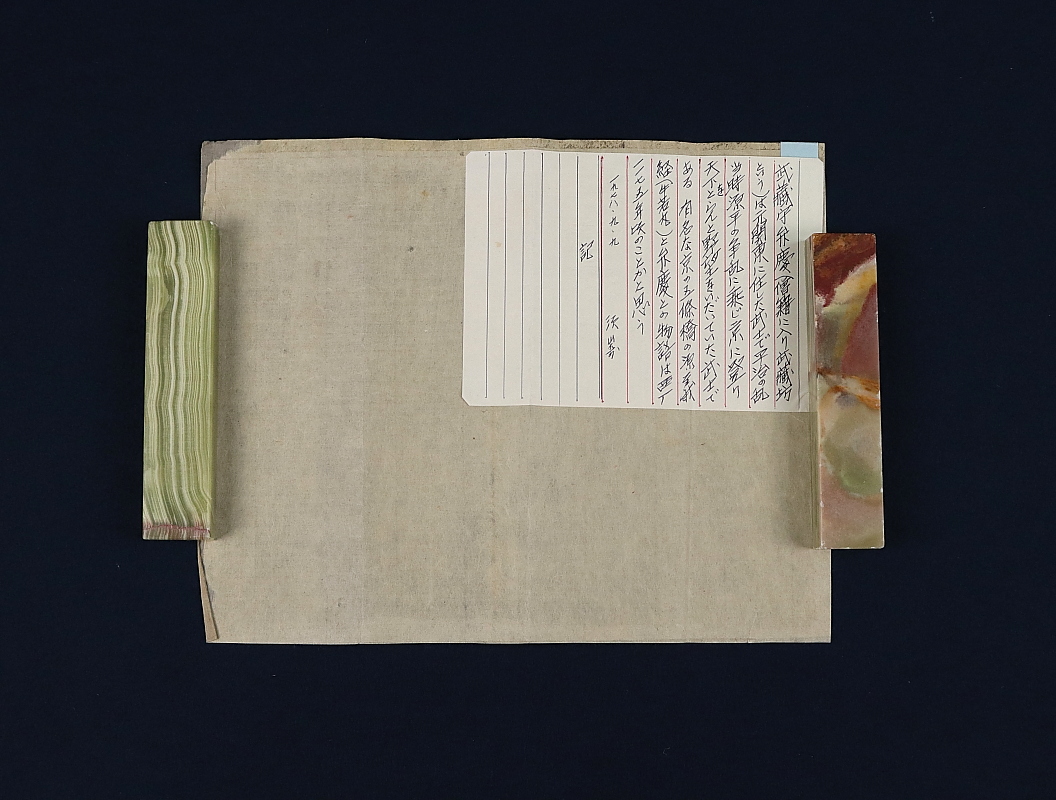 武蔵守弁慶(僧籍に入り武蔵坊
云う)は元関東に住した武士で平治の乱
当時源平の争乱に乗じ京に登り
天下をとらんと野望をいだいていた武士で
ある 有名な京の五條橋の源義
経(牛若丸)と弁慶との物語は
一一七五年頃のことかと思う
一九七八・九・九
記